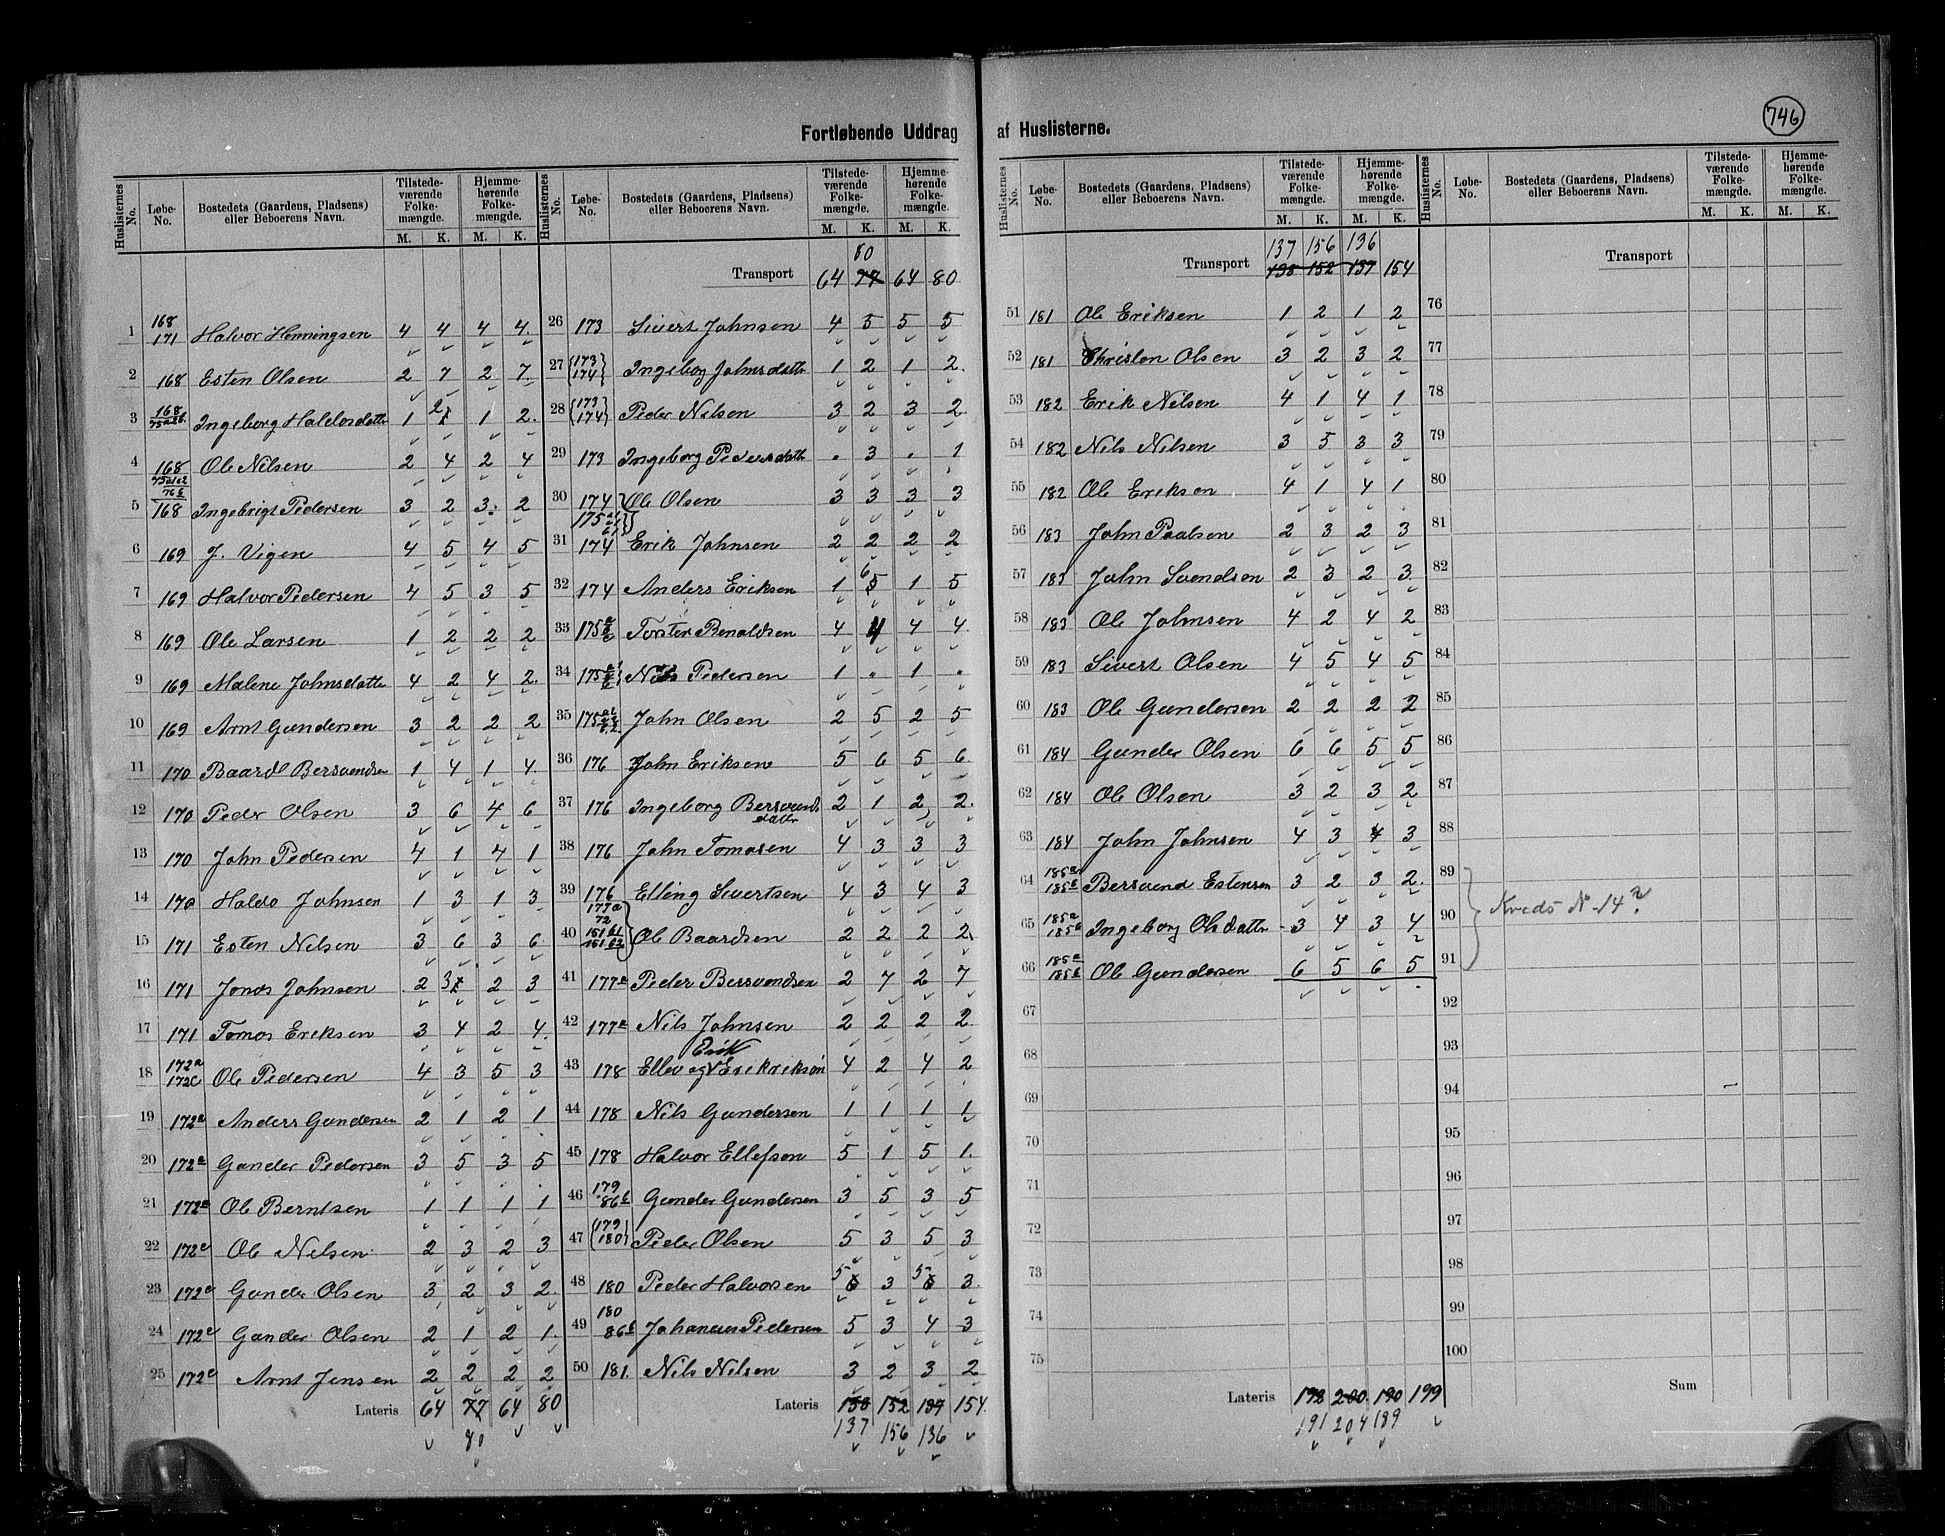 746
Fortløbende Uddrag af Huslisterne.
Huslisternes No. | Løbe-No. | Bostedets (Gaardens, Pladsens) eller Beboerens Navn. | Tilstedeværende Folkemængde. M. K. | Hjemmehørende Folkemængde. M. K.
1 168 171 Halvor Henningsen 4 4 4 4.
2 168 Esten Olsen 2 7 2 7.
3 168 Ingeborg Haldosdatter 1 2 1 2.
4 168 Ole Nilsen 2 4 2 4
5 168 Ingebrigt Pedersen 3 2 3 2
6 169 J. Vigen 4 5 4 5
7 169 Halvor Pedersen 4 5 3 5
8 169 Ole Larsen 1 2 2 2
9 169 Malene Johnsdatte 4 2 4 2.
10 169 Arnt Gundersen 3 2 2 2
11 170 Baard Bersvendsen 1 4 1 4.
12 170 Peder Olsen 3 6 4 6
13 170 John Pedersen 4 1 4 1
14 170 Haldo Johnsen 1 3 1 3
15 171 Esten Nilsen 3 6 3 6
16 171 Jonas Johnsen 2 3 2 3
17 171 Tomas Eriksen 3 4 2 4.
18 172a 172c Ole Pedersen 4 3 5 3
19 172a Anders Gundersen 2 1 2 1
20 172a Gunder Pedersen 3 5 3 5
21 172a Ole Berntsen 1 1 1 1
22 172c Ole Nelsen 2 3 2 3
23 172c Gunder Olsen 3 2 3 2.
24 172c Gunder Olsen 2 1 2 1.
25 172c Arnt Jensen 2 2 2 2
Lateris 64 77 64 80
80
Transport 64 77 64 80
80
26 173 Sivert Johnsen 4 5 5 5
27 {173 174} Ingeborg Johnsdattr 1 2 1 2.
28 {173 174} Peder Nilsen 3 2 3 2
29 173 Ingeborg Pedersdattr . 3 . 1
30 174 Ole Olsen 3 3 3 3
31 174 Erik Johnsen 2 2 2 2
32 174 Anders Eriksen 1 6 1 5
33 175 Torster Benaldsen 4 4 4 4
34 175 Nils Pedersen 1 . 1 .
35 175 John Olsen 2 5 2 5
36 176 John Eriksen 5 6 5 6
37 176 Ingeborg Bersvends datter 2 1 2 2.
38 176 John Tomasen 4 3 3 3
39 176 Elling Sivertsen 4 3 4 3
40 177a 72 151 b1 151 b2 Ole Baardsen 2 2 2 2
41 177a Peder Bersvendsen 2 7 2 7
42 177a Nils Johnsen 2 2 2 2
Erik
43 178 Ellev og 4 2 4 2
44 178 Nils Gundersen 1 1 1 1
45 178 Halvor Ellefson 5 1 5 1.
46 179 86b Gunder Gundersen 3 5 3 5
47 {179 180} Peder Olsen 5 3 5 3
48 180 Peder Halvorsen 5 3 5 3.
49 180 86b Johannes Pedersen 5 3 4 3
50 181. Nils Nilsen 3 2 3 2
Lateris 138 152 137 154.
137 156 136
137 156 136
Transport 138 152 137 154
51 181 Ole Eriksen 1 2 1 2
52 181 Christen Olsen 3 2 3 2
53 182 Erik Nilsen 4 1 4 1
54 182 Nils Nilsen 3 5 3 3
55 182 Ole Eriksen 4 1 4 1
56 183 John Paalsen 2 3 2 3
57 183 John Svendsen 2 3 2 3
58 183 Ole Johnsen 4 2 4 2
59 183 Sivert Olsen 4 5 4 5
60 183 Ole Gundersen 2 2 2 2
61 184 Gunder Olsen 6 6 5 5
62 184 Ole Olsen 3 2 3 2
63 184 John Johnsen 4 3 4 3
64 185a 185b Bersvend Estensen 3 2 3 2.
65 185a 185b Ingeborg Olsdattr 3 4 3 4
66 185a 185b Ole Gundersen 6 5 6 5
67
68
69
70
71
72
73
74
75
Lateris 192 200 190 199
191 204 189
Transport
76
77
78
79
80
81
82
83
84
85
86
87
88
89
90 Kreds No 14?
91
92
93
94
95
96
97
98
99
100
Sum